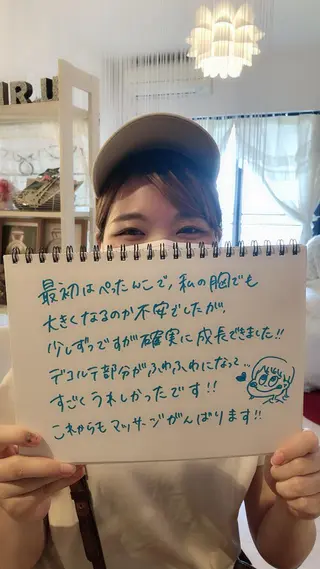 IRU
最初はぺったんこで、私の胸でも
大きくなるのか不安でしたが、
少しずつですが確実に成長できました!!
デコルテ部分がふわふわになって..
すごくうれしかったです!!
これからもマッサージがんばります!!